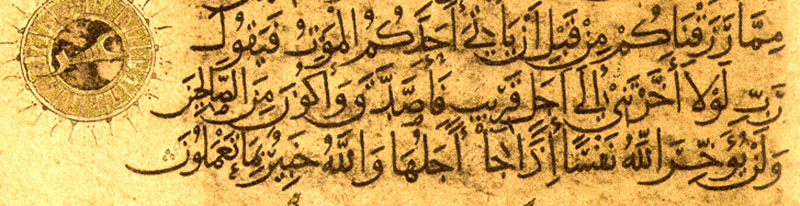 مِمَّا رَزَقْنَاكُمْ مِنْ قَبْلِ أَنْ يَأْتِيَ أَحَدَكُمُ الْمَوْتُ فَيَقُولُ
رَبِّ لَوْلَا أَخَّرْتَنِي إِلَى أَجَلٍ قَرِيبٍ فَأَصَّدَّقَ وَأَكُونَ مِنَ الصَّالِحِينَ
وَلَنْ يُؤَخِّرَ اللَّهُ نَفْسًا إِذَا جَاءَ أَجَلُهَا وَاللَّهُ خَبِيرٌ بِمَا تَعْمَلُونَ